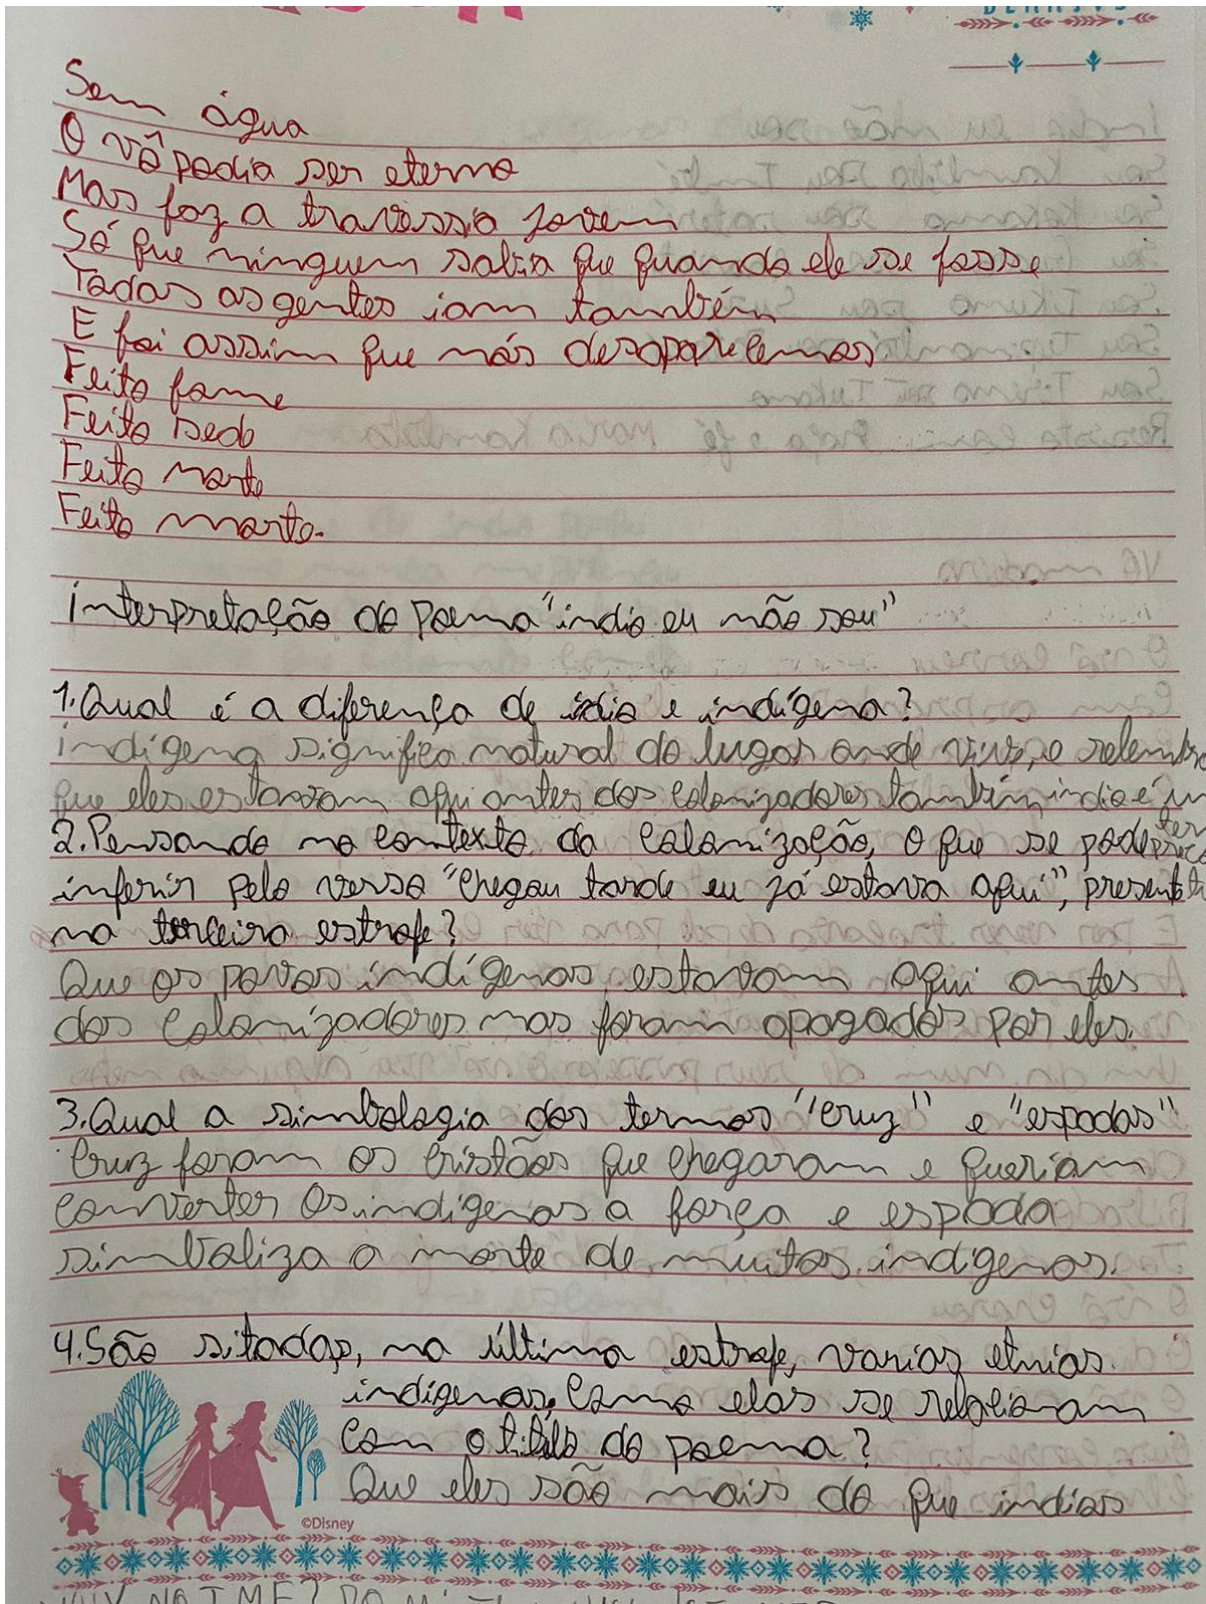 Sem água
O vô podia ser eterno
Mas faz a travessia jovem
Só que ninguem sabia que quando ele se fosse
Todas as gentes iam também
E foi assim que nós desaparecemos
Feito fome
Feito sede
Feito morte
Feito morto.
interpretação do Poema "índio eu não sou"
1. Qual é a diferença de índio e indígena?
indígena significa natural do lugar onde vive, e relembra
que eles estavam aqui antes dos colonizadores também índio é um
ter
2. Pensando no contexto da colonização, o que se pode
inferir pelo verso "chegou tarde eu já estava aqui", presente
na terceira estrofe?
Que os povos indígenas estavam aqui antes
dos colonizadores mas foram apagados por eles.
3. Qual a simbologia dos termos "cruz" e "espadas"
Cruz foram os cristãos que chegaram e queriam
converter os indígenas a força e espada
simboliza a morte de muitos indígenas.
4. São sitadas, na última estrofe, varias etnias
indígenas, Como elas se relacionam
com o título do poema?
Que eles são mais do que indios
©Disney